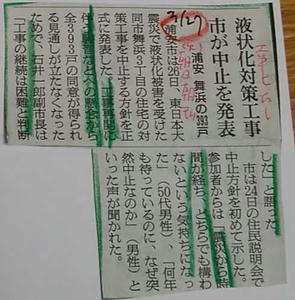 液状化対策工事
市が中止を発表
浦安 舞浜の393戸
3/27
浦安市は26日、東日本大
震災で液状化被害を受けた
同市舞浜3丁目の住宅の対
策工事を中止する方針を正
式に発表した。工事再開に
住
全393戸の同意が得られ
る見通しが立たなくなった
ため。石井一郎副市長は
「工事の継続は困難と判断
した」と語った。
市は24日の住民説明会で
中止方針を初めて示した。
参加者からは「震災から時
間が経ち、どちらでも構わ
ないという気持ちになっ
た」(50代男性)、「何年
も待っているのに、なぜ突
然中止なのか」(男性)と
いった声が聞かれた。